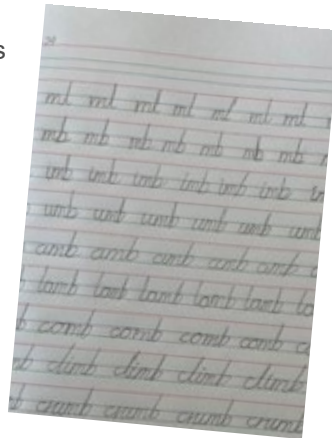 s
ml ml ml ml ml ml ml
mb mb mb mb mb mb mb
imb imb imb imb imb imb
umb umb umb umb umb umb
amb amb amb amb amb
lamb lamb lamb lamb lamb
comb comb comb comb
climb climb climb climb
crumb crumb crumb crumb